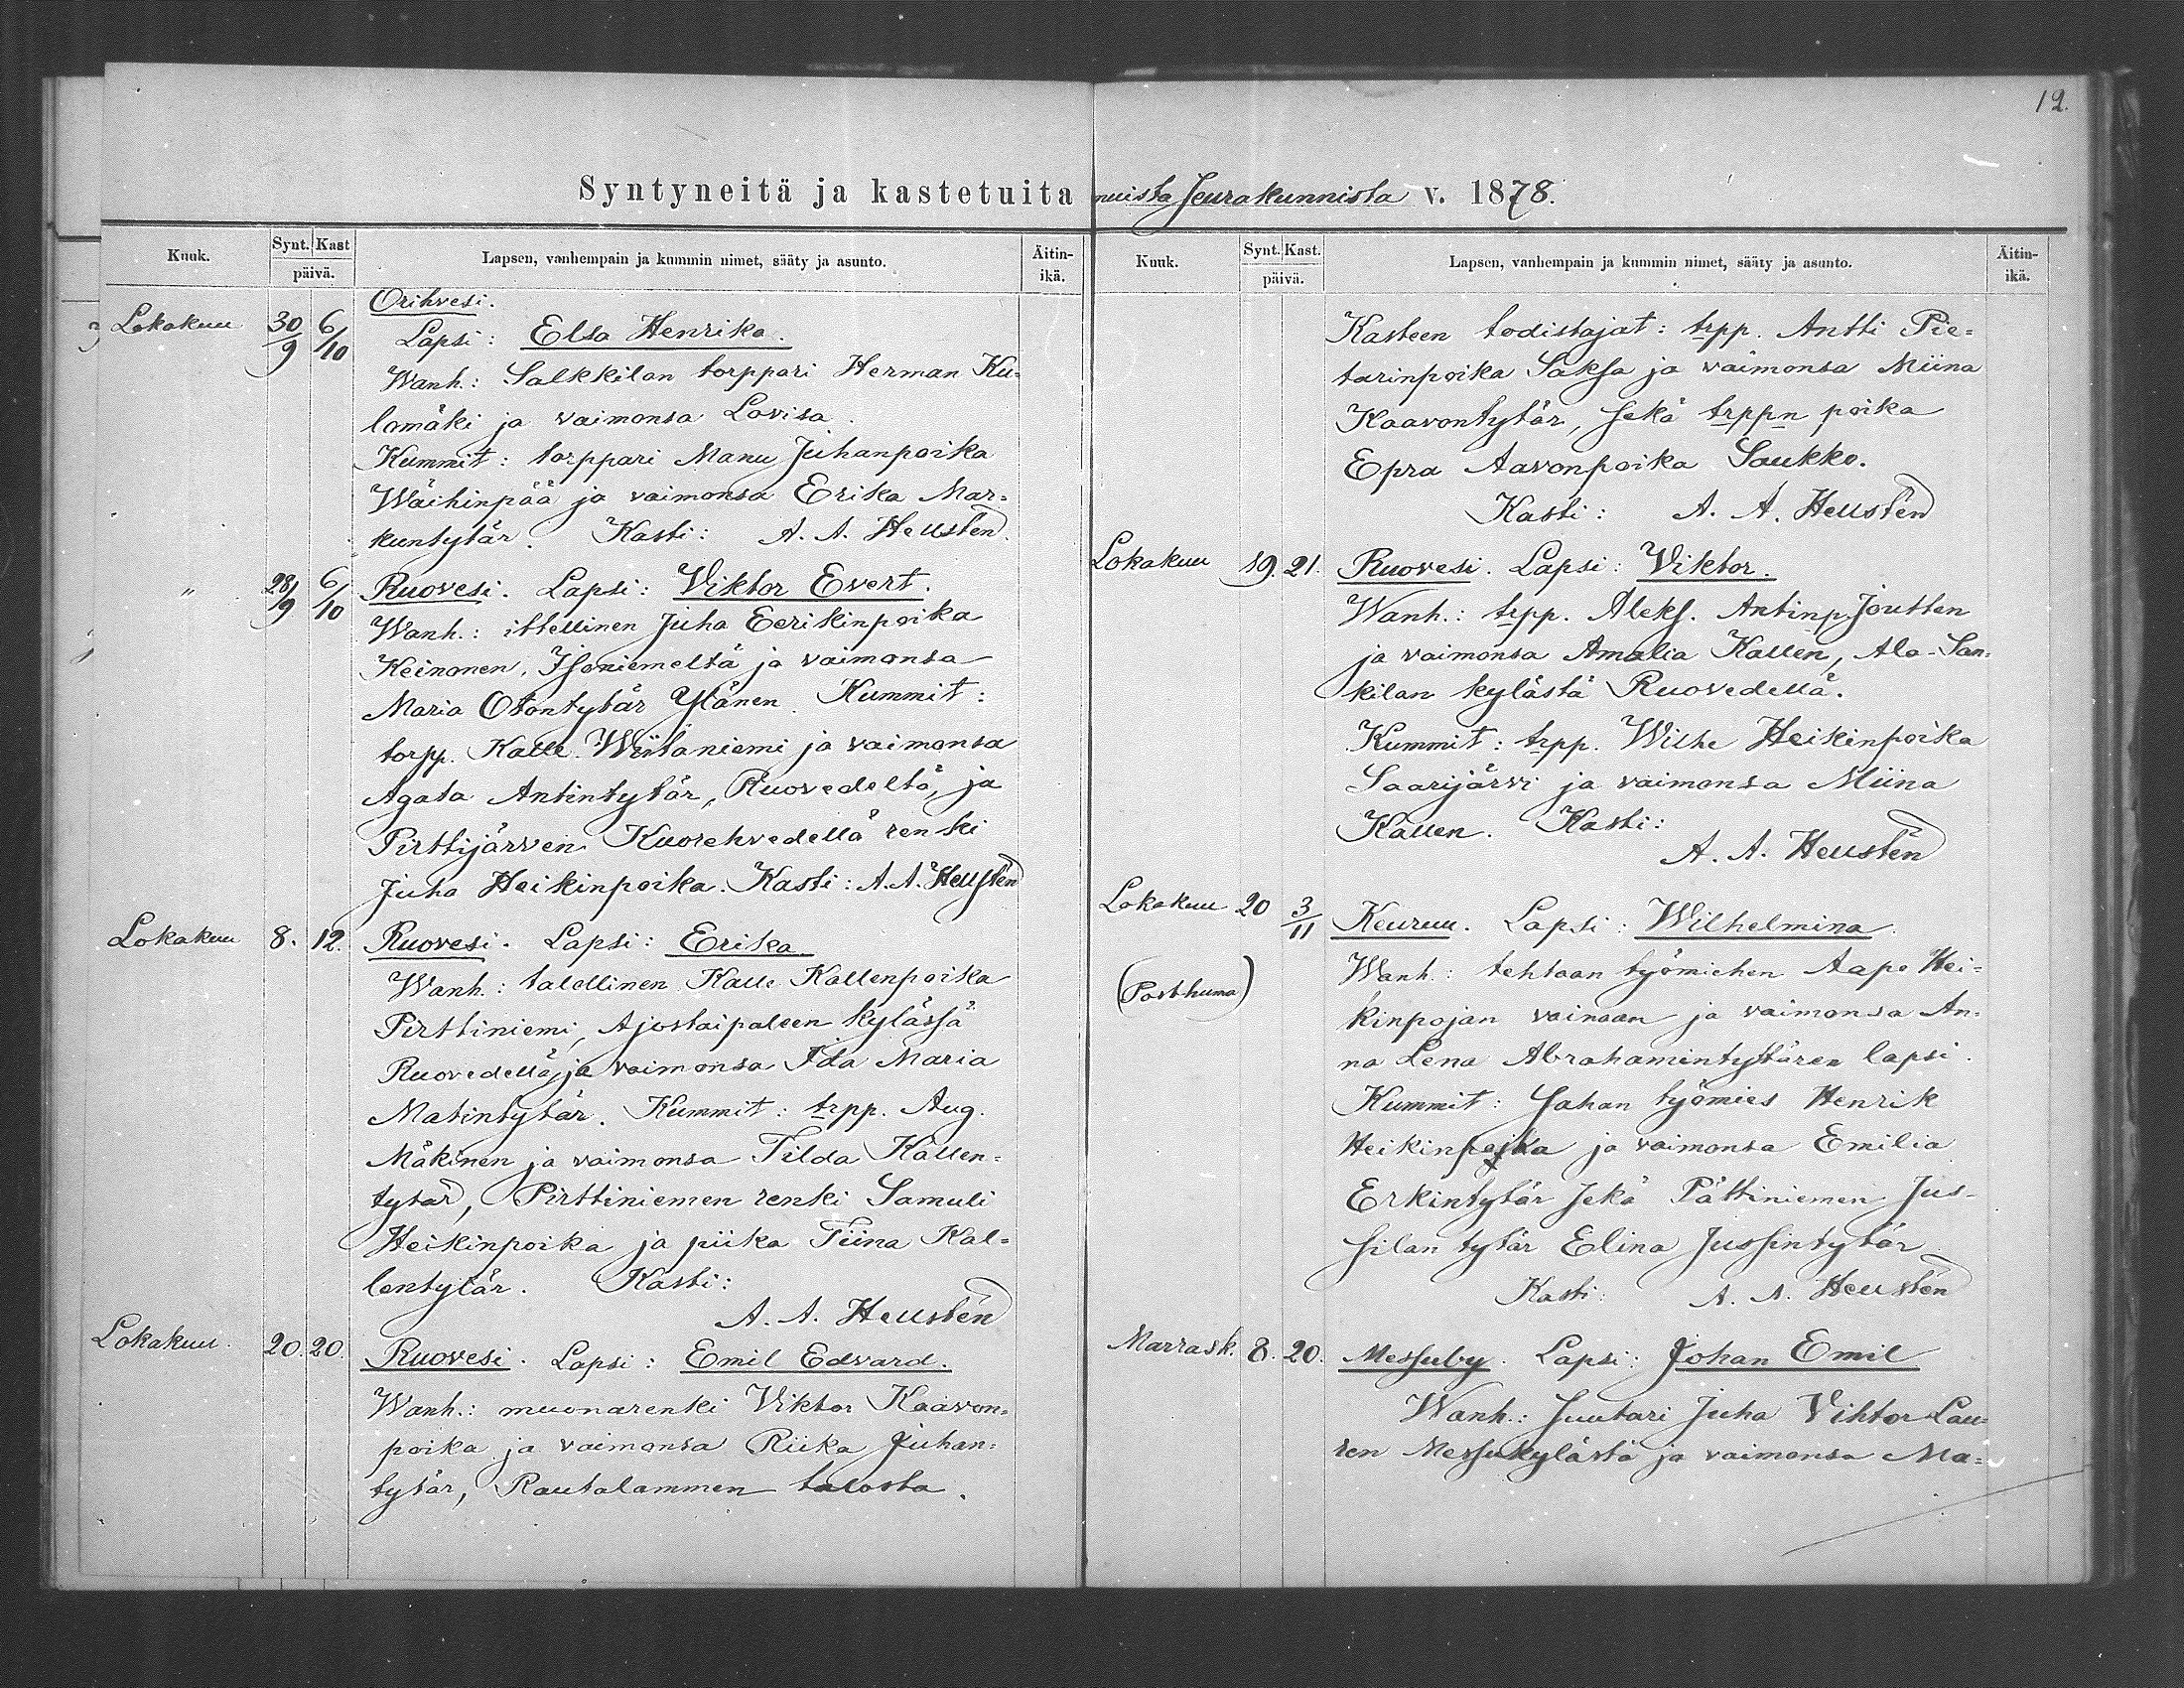 12.
Syntyneitä ja kastetuita muista Seurakunnista v. 1878.
Kuuk. Synt. Kast päivä. Lapsen, vanhempain ja kummin nimet, sääty ja asunto. Äitin-ikä.
Orihvesi.
Lokakuu 30/9 6/10 Lapsi: Elsa Henrika.
Wanh.: Salkkilan torppari Herman Ku=
lomäki ja vaimonsa Lovisa.
Kummit: torppari Manu Juhanpoika
Wäihinpää ja vaimonsa Erika Mar=
kuntytär. Kasti: A. A. Hellstén.
" 28/9 6/10 Ruovesi. Lapsi: Viktor Evert.
Wanh.: ittellinen Juha Eerikinpoika
Keinonen, Isoniemeltä ja vaimonsa
Maria Otontytär Ylänen. Kummit:
torpp. Kalle Wiitaniemi ja vaimonsa
Agata Antintytär, Ruovedeltä, ja
Pirttijärven Kuorehvedellä renki
Juha Heikinpoika. Kasti: A. A. Hellstén
Lokakuu 8. 12. Ruovesi. Lapsi: Erika.
Wanh.: talollinen Kalle Kallenpoika
Pirttiniemi, Ajostaipaleen kylässä
Ruovedellä, ja vaimonsa Ida Maria
Matintytär. Kummit: trpp. Aug.
Mäkinen ja vaimonsa Tilda Kallen=
tytär, Pirttiniemen renki Samuli
Heikinpoika ja piika Tiina Kal=
lentytär. Kasti:
A. A. Hellstén
Lokakuu. 20. 20. Ruovesi. Lapsi: Emil Edvard.
Wanh.: muonarenki Viktor Kaavon=
poika ja vaimonsa Riika Juhan=
tytär, Rautalammen talosta.
Kuuk. Synt. Kast. päivä. Lapsen, vanhempain ja kummin nimet, sääty ja asunto. Äitin-ikä.
Kasteen todistajat: trpp. Antti Pie=
tarinpoika Saksa ja vaimonsa Miina
Kaavontytär, sekä trppn poika
Epra Aavonpoika Saukko.
Kasti: A. A. Hellstén
Lokakuu 19. 21. Ruovesi. Lapsi: Viktor.
Wanh.: trpp. Aleks. Antinp. Joutten
ja vaimonsa Amalia Kallen, Ala-San=
kilan kylästä Ruovedellä.
Kummit: trpp. Wilhe Heikinpoika
Saarijärvi ja vaimonsa Miina
Kallen. Kasti:
A. A. Hellstén
Lokakuu 20 3/11 Keuruu. Lapsi: Wilhelmina.
(Posthuma) Wanh.: tehtaan työmiehen Aape Hei=
kinpojan vainaan ja vaimonsa An=
na Lena Abrahamintyttären lapsi.
Kummit: Sahan työmies Henrik
Heikinpoika ja vaimonsa Emilia
Erkintytär sekä Pättiniemen Jus=
silan tytär Elina Jussintytär
Kasti: A. A. Hellstén
Marrask. 8. 20. Messuby. Lapsi: Johan Emil
Wanh.: Suutari Juha Vihtor Lau=
ren Messukylästä ja vaimonsa Ma=